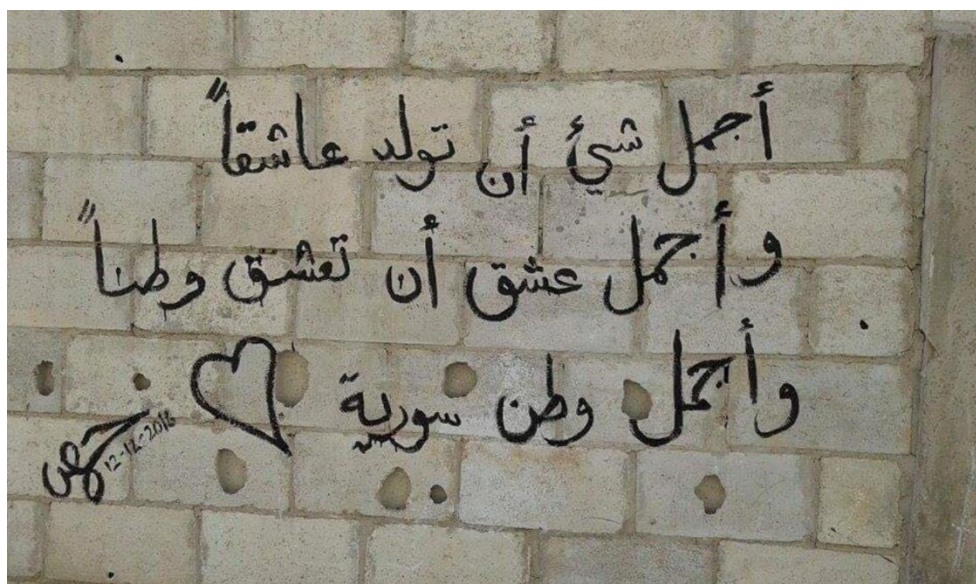 أجمل شئ أن تولد عاشقاً
وأجمل عشق أن تعشق وطناً
وأجمل وطن سورية
حمص
12-12-2016